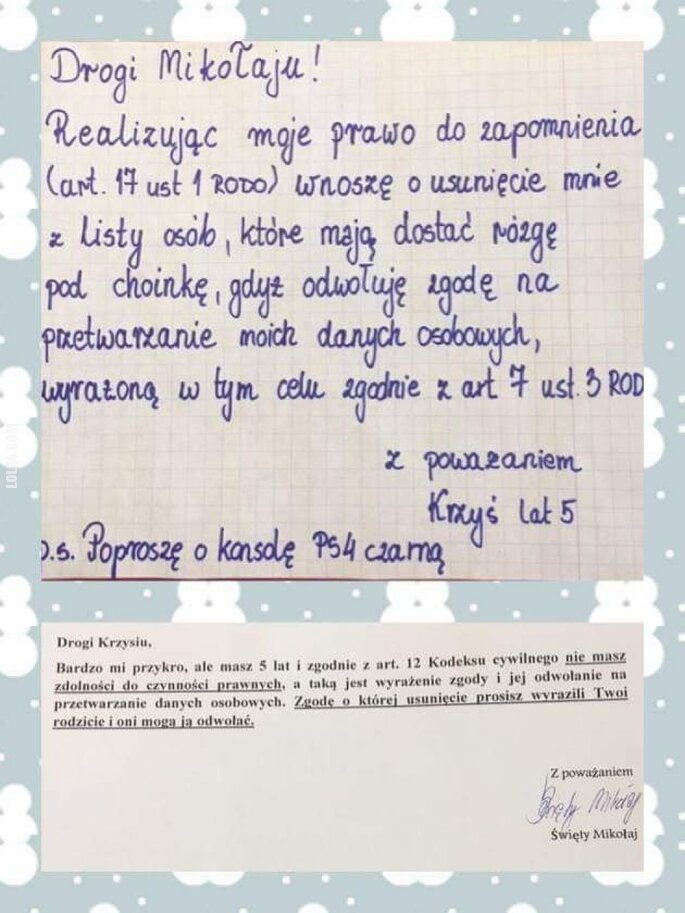 Drogi Mikołaju!
Realizując moje prawo do zapomnienia
(art. 17 ust 1 RODO) wnoszę o usunięcie mnie
z listy osób, które mają dostać rózgę
pod choinkę, gdyż odwołuję zgodę na
przetwarzanie moich danych osobowych,
wyrażoną w tym celu zgodnie z art 7 ust. 3 ROD
z poważaniem
Krzyś lat 5
p.s. Poproszę o konsolę PS4 czarną
Drogi Krzysiu,
Bardzo mi przykro, ale masz 5 lat i zgodnie z art. 12 Kodeksu cywilnego nie masz
zdolności do czynności prawnych, a taką jest wyrażenie zgody i jej odwołanie na
przetwarzanie danych osobowych. Zgodę o której usunięcie prosisz wyrazili Twoi
rodzicie i oni mogą ją odwołać.
Z poważaniem
Święty Mikołaj
Święty Mikołaj